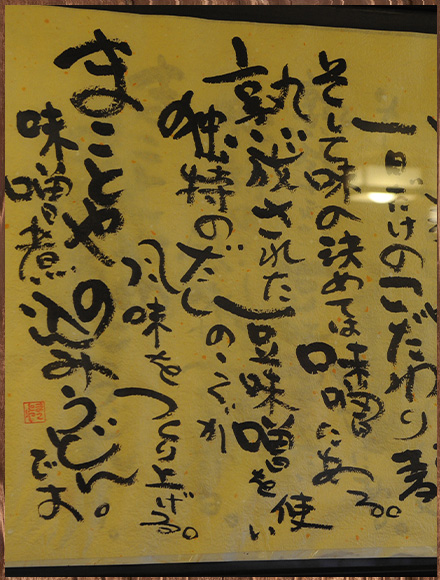 一日だけのこだわり
そして味の決めては味噌にある。
熟成された豆味噌を使い
独特のだしのこくが
風味をつくり上げる。
まことやの
味噌煮込みうどんです。